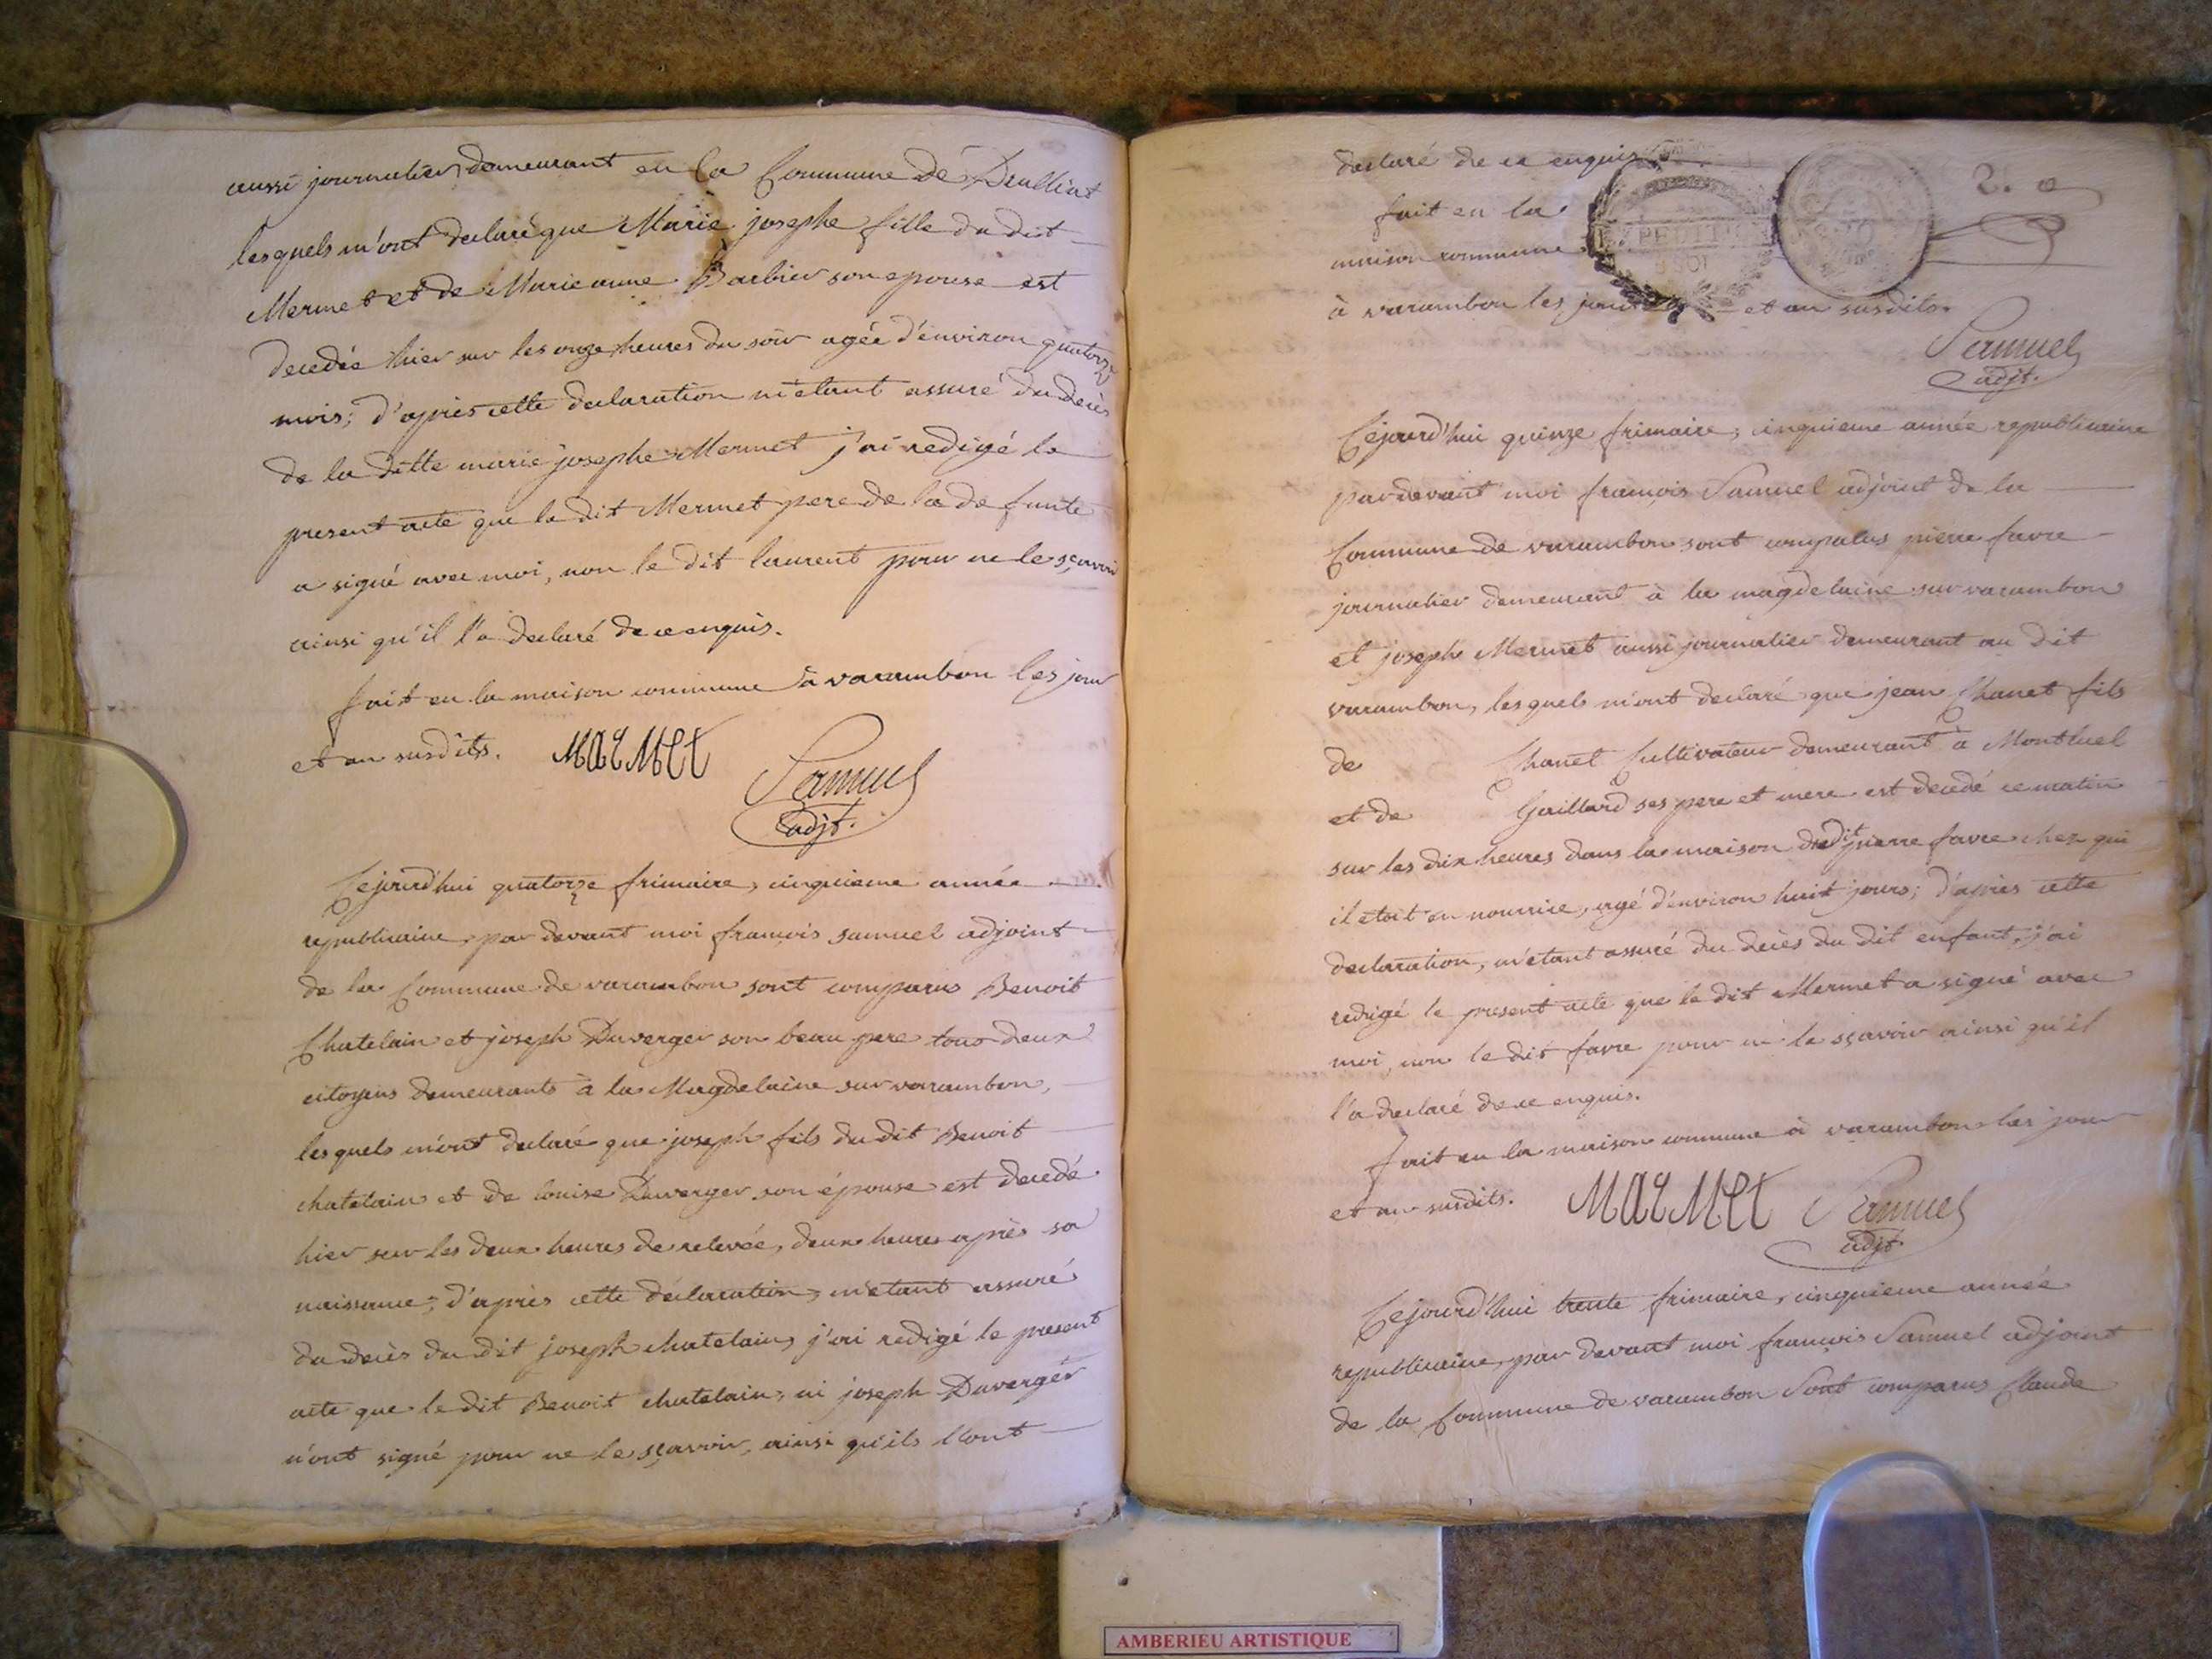 aussi journalier demeurant en la Commune de Druilliat
lesquels m'ont declaré que Marie josephe fille du dit
Mermet et de Marieanne Barbier son epouse est
decedée hier sur les onze heures du soir agée d'environ quatorze
mois; d'après cette declaration m'etant assuré du decès
de la ditte marie josephe Mermet j'ai redigé le
present acte que le dit Mermet pere de la defunte
a signé avec moi, non le dit laurent pour ne le sçavoir
ainsi qu'il l'a declaré de ce enquis.
fait en la maison commune à varambon les jour
et an susdits. MARMET Samuel
adjt.
Cejourd'hui quatorze frimaire, cinquieme année
republicaine, par devant moi françois samuel adjoint
de la Commune de varambon sont comparus Benoit
Chatelain et joseph Duverger son beau pere tous deux
citoyens demeurants à la Magdelaine sur varambon,
lesquels m'ont declaré que joseph fils du dit Benoit
chatelain et de louise Duverger son épouse est decedé
hier sur les deux heures de relevée, deux heures après sa
naissance; d'après cette déclaration, m'etant assuré
du decès du dit joseph chatelain, j'ai redigé le present
acte que le dit Benoit chatelain, ni joseph Duverger
n'ont signé pour ne le sçavoir, ainsi qu'ils l'ont
declaré de ce enquis
fait en la
maison commune
à varambon les jour et an susdits.
Samuel
adjt.
Cejourd'hui quinze frimaire, cinquieme année republicaine
pardevant moi françois Samuel adjoint de la
Commune de varambon sont comparus pierre favre
journalier demeurant à la magdelaine sur varambon
et joseph Mermet aussi journalier demeurant au dit
varambon, lesquels m'ont declaré que jean Chanet fils
de Chanet Cultivateur demeurant à Montluel
et de Gaillard ses pere et mere est decedé ce matin
sur les dix heures dans la maison dudit pierre favre chez qui
il etoit en nourrice, agé d'environ huit jours; d'après cette
declaration, m'etant assuré du decès du dit enfant, j'ai
redigé le present acte que le dit Mermet a signé avec
moi, non le dit favre pour ne le sçavoir ainsi qu'il
l'a declaré de ce enquis.
fait en la maison commune à varambon les jour
et an susdits. MARMET Samuel
adjt.
Cejourd'hui trente frimaire, cinquieme année
republicaine, par devant moi françois Samuel adjoint
de la Commune de varambon Sont comparus Claude
AMBERIEU ARTISTIQUE